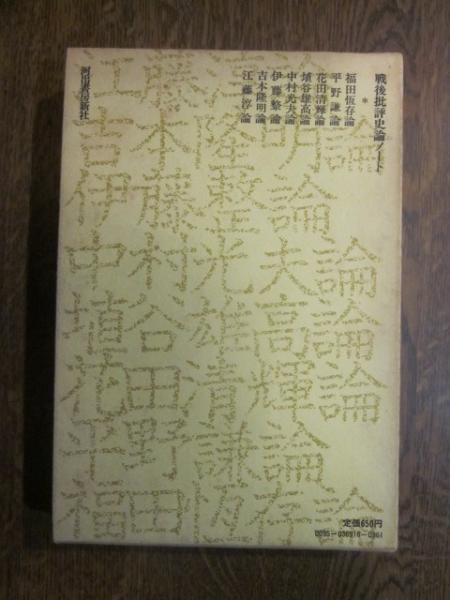 戦後批評史論ノート
*
福田恆存論
平野謙論
花田清輝論
埴谷雄高論
中村光夫論
伊藤整論
吉本隆明論
江藤淳論
河出書房新社
江藤淳論
吉本隆明論
伊藤整論
中村光夫論
埴谷雄高論
花田清輝論
平野謙論
福田恆存論
定価650円
0095-036916-0961